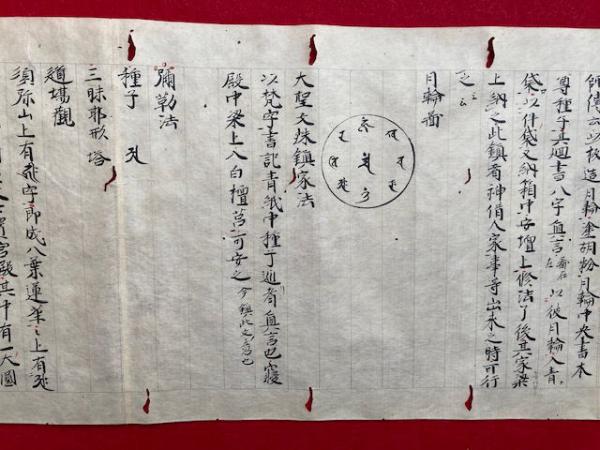 師傳云以板造月輪塗胡粉月輪中央書本
尊種子其𢌞書八字真言 以彼月輪入青
袋以件袋又納箱中安壇上修法了後其家梁
上納之此鎮者神借人家事等出来之時可行
之云云
月輪啚
大聖文殊鎮家法
以梵字書記青紙中種子𢌞者真言也寢
殿中梁上入白檀筥可安之 今鎮此
彌勒法
種子
三昧耶形 塔
道場觀
須弥山上有 字即成八葉蓮華之上有
宮殿其中有一大圓